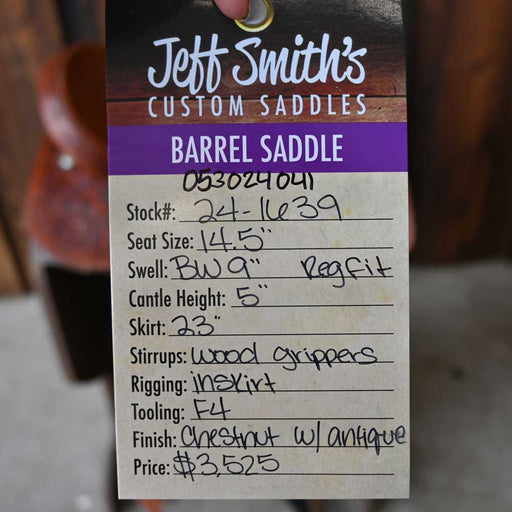 Jeff Smith's
CUSTOM SADDLES
BARREL SADDLE
053024041
Stock#: 24-1639
Seat Size: 14.5"
Swell: BW 9" Reg fit
Cantle Height: 5"
Skirt: 23"
Stirrups: wood grippers
Rigging: inskirt
Tooling: F4
Finish: Chestnut w/ antique
Price: $3,525